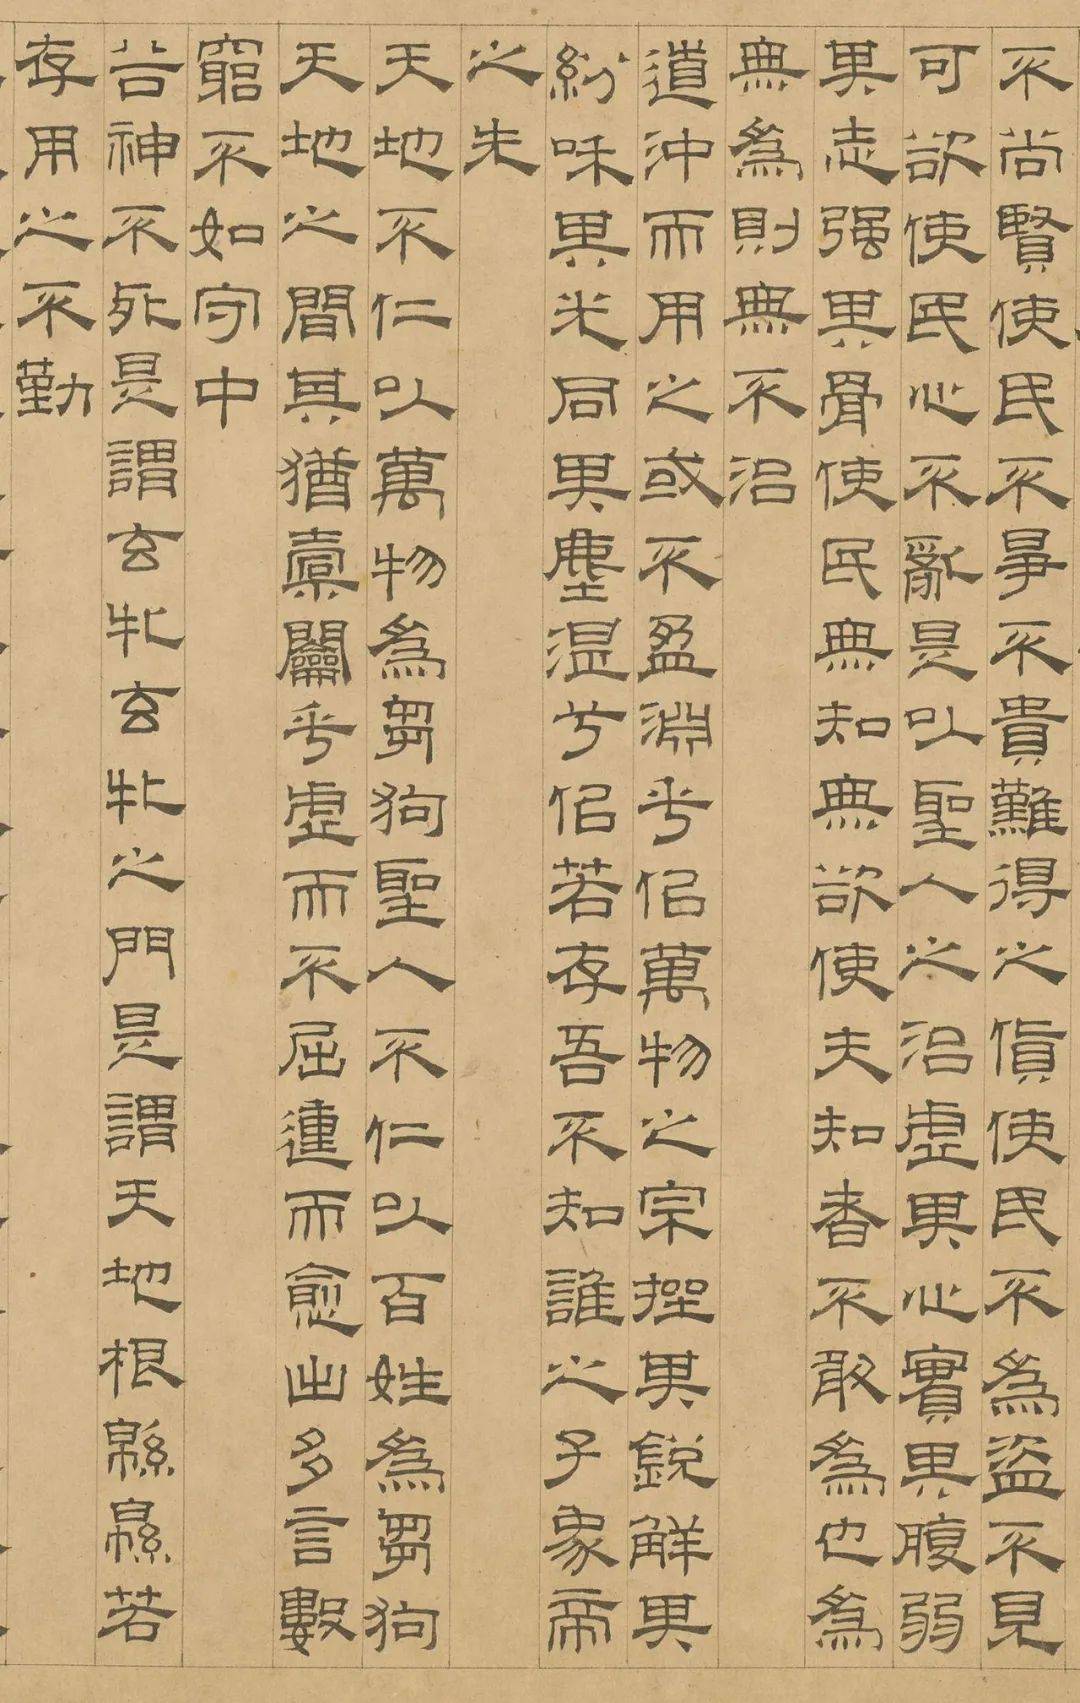 不尚賢使民不爭不貴難得之貨使民不爲盜不見
可欲使民心不亂是以聖人之治虛其心實其腹弱
其志强其骨使民無知無欲使夫知者不敢爲也爲
無爲則無不治
道沖而用之或不盈淵乎佀萬物之宗挫其銳解其
紛和其光同其塵湛兮佀若存吾不知誰之子象帝
之先
天地不仁以萬物爲芻狗聖人不仁以百姓爲芻狗
天地之間其猶橐籥乎虛而不屈運而愈出多言數
窮不如守中
谷神不死是謂玄牝玄牝之門是謂天地根緜緜若
存用之不勤